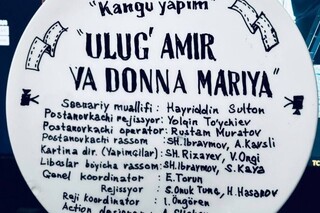 "Kangu yapım"
"ULUG' AMIR
VA DONNA MARIYA"
Ssenariy muallifi : Hayriddin Sulton
Postanovkachi rejissyor: Yolqin To'ychiev
Postanovkachi operator: Rustam Muratov
Postanovkachi rassom : SH.Ibravmov, A.Kaysli
Kartina dir. (Yapimçilar) : SH.Rizayev, V.Ongi
Libaslar bòyicha rassom: SH.Ibravmov, S.Kaya
Genel koordinator : E.Torun
Rejissyor : S.Onuk Tunç, H.Hasanov
Reji koordinator : İ.Öngören
Action